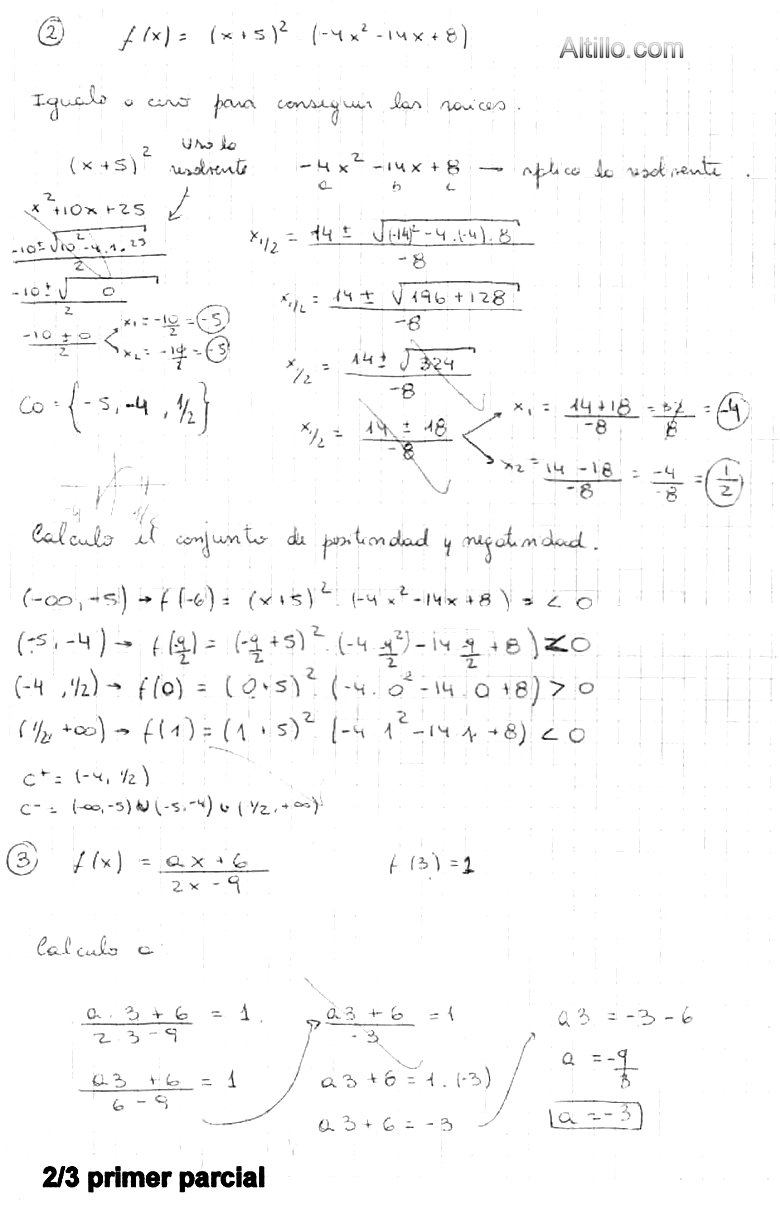 ② f(x) = (x+5)² (-4x² -14x+8)
Altillo.com
Igualo a cero para conseguir las raices.
(x+5)² uso la resolvente
-4x² -14x+8 → aplico la resolvente.
a b c
x²+10x+25
-10±√10²-4.1.25 / 2
-10±√0 / 2
-10±0 / 2
x₁ = -10/2 = -5
x₂ = -10/2 = -5
C0 = {-5, -4, 1/2}
x1/2 = 14 ± √(-14)² -4.(-4).8 / -8
x1/2 = 14 ± √196 + 128 / -8
x1/2 = 14 ± √324 / -8
x1/2 = 14 ± 18 / -8
x₁ = 14+18 / -8 = 32/8 = -4
x₂ = 14-18 / -8 = -4/-8 = 1/2
-4 1/2
Calculo el conjunto de positividad y negatividad.
(-∞, -5) → f(-6) = (x+5)² (-4x² -14x+8) = < 0
(-5, -4) → f(9/2) = (-9/2 +5)² (-4 . 9/2²) -14 9/2 + 8) < 0
(-4, 1/2) → f(0) = (0+5)² (-4. 0² -14. 0 +8) > 0
(1/2, +∞) → f(1) = (1+5)² (-4 1² -14 1 +8) < 0
C⁺ = (-4, 1/2)
C⁻ = (-∞, -5) ∪ (-5, -4) ∪ (1/2, +∞)
③ f(x) = ax+6 / 2x-9 f(3) = 1
Calculo a
a . 3 + 6 / 2 . 3 - 9 = 1.
a3 + 6 / 6 - 9 = 1
a3 + 6 / -3 = 1
a3 + 6 = 1. (-3)
a3 + 6 = -3
a3 = -3 - 6
a = -9/3
a = -3
2/3 primer parcial